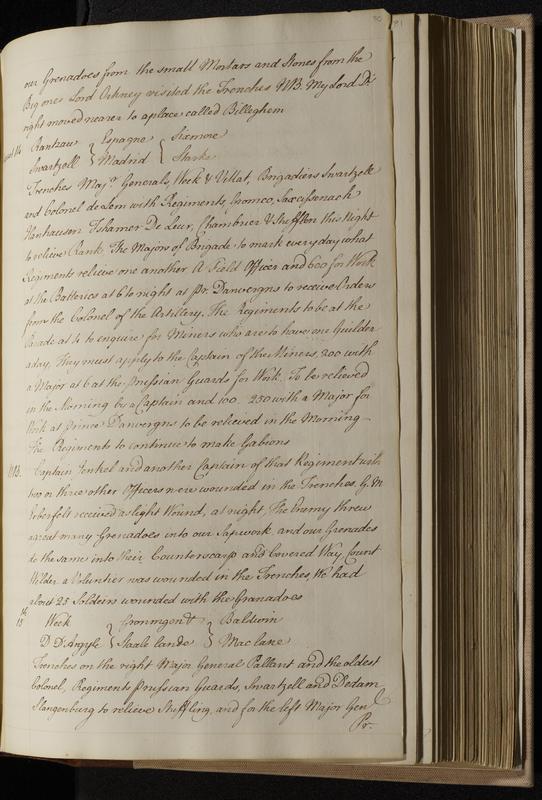 our Grenadoes from the small Mortars and Stones from the
Big ones Lord Orkney visited the Trenches NB. My Lord D:
right moved nearer to a place called Billeghem
14 Rantzau } Espagne { Sixmore
Swartzell } Madrid { Starke
Trenches Maj:r Generals, Week & Villat, Brigadiers Swartzell
and Colonel de Lem with Regiments, Gromeo, Saxeissenach
Hanhausen Tchamer De Leur, Chambrier & Shufflen this Night
to relieve Rank. The Majors of Brigade to mark every day what
Regiments relieve one another A Field Officer and 600 for Work
at the Batteries at 6 to night at Pr. Danvergns to receive Orders
from the Colonel of the Artillery. The Regiments to be at the
Parade at 4 to enquire for Miners who are to have one Guilder
a day. They must apply to the Captain of the Miners. 200 with
a Major at 6 at the Prussian Guards for Work. To be relieved
in the Morning by a Captain and 100. 250 with a Major for
Work at prince Danvergns to be relieved in the Morning
The Regiments to continue to make Gabions
Captain Jenkel and another Captain of that Regiment with
two or three other Officers were wounded in the Trenches. G. M
Erberfelt received a slight Wound, at night, The Enemy threw
a great many Grenadoes into our Sapwork, and our Grenades
do the same into their Counterscarp and Covered Way Count
Wilder a Volunteer was wounded in the Trenches We had
about 25 Soldeirs wounded with the Granadoes
15 Week } Gronmgont } Baldwin
D D'Argyle } Staalelande } Maclane
Trenches on the right Major General Pallant and the oldest
Colonel, Regiments Prussian Guards, Swartzell and Dedam
Slangenburg to relieve Stuffling, and for the left Major Gen:l
Pr.